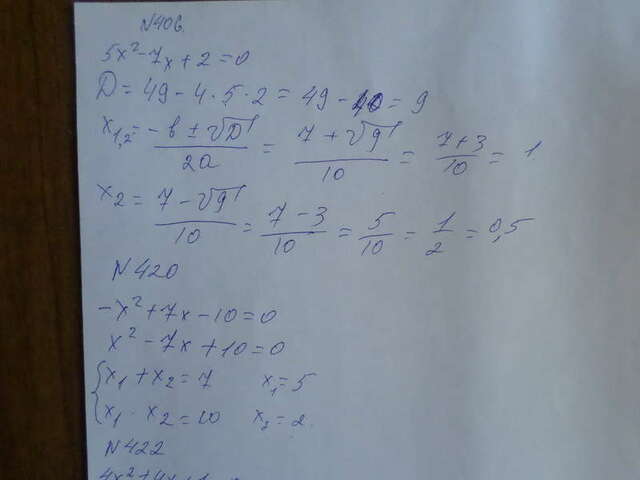 N406.
5x²-7x+2=0
D=49-4·5·2=49-40=9
x₁,₂=-b±√D/2a=7+√9/10=7+3/10=1
x₂=7-√9/10=7-3/10=5/10=1/2=0,5
N420
-x²+7x-10=0
x²-7x+10=0
{x₁+x₂=7 x₁=5
x₁·x₂=10 x₂=2
N422
4x²+4x+1